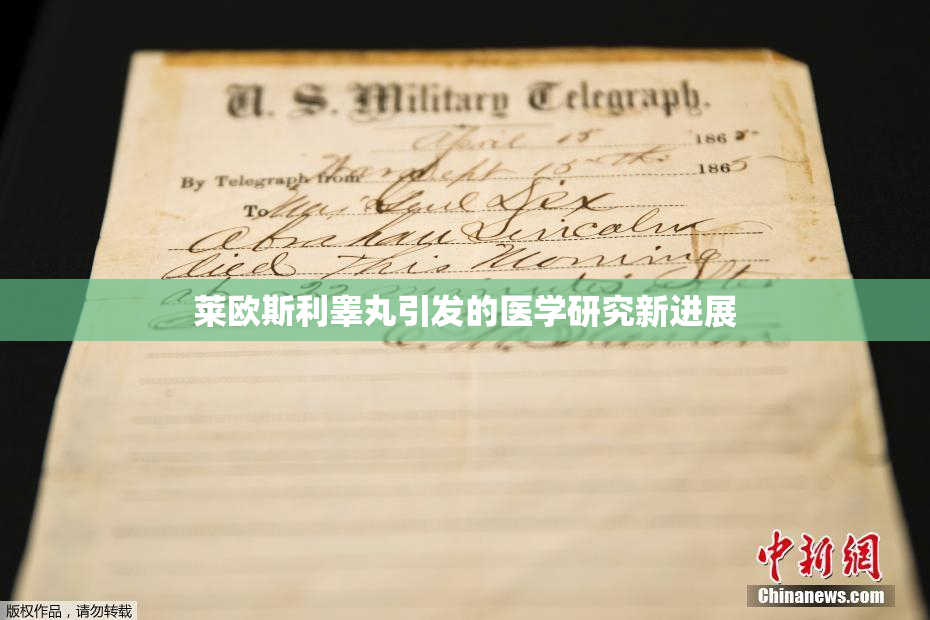 U. S. Military Telegraph.
April 15 1865
By Telegraph from War Dept 15th 1865
To Maj Genl Dix
Abraham Lincoln
died This Morning
at 22 minutes after
莱欧斯利睾丸引发的医学研究新进展
E. M. Stanton
中新网
Chinanews.com
版权作品，请勿转载